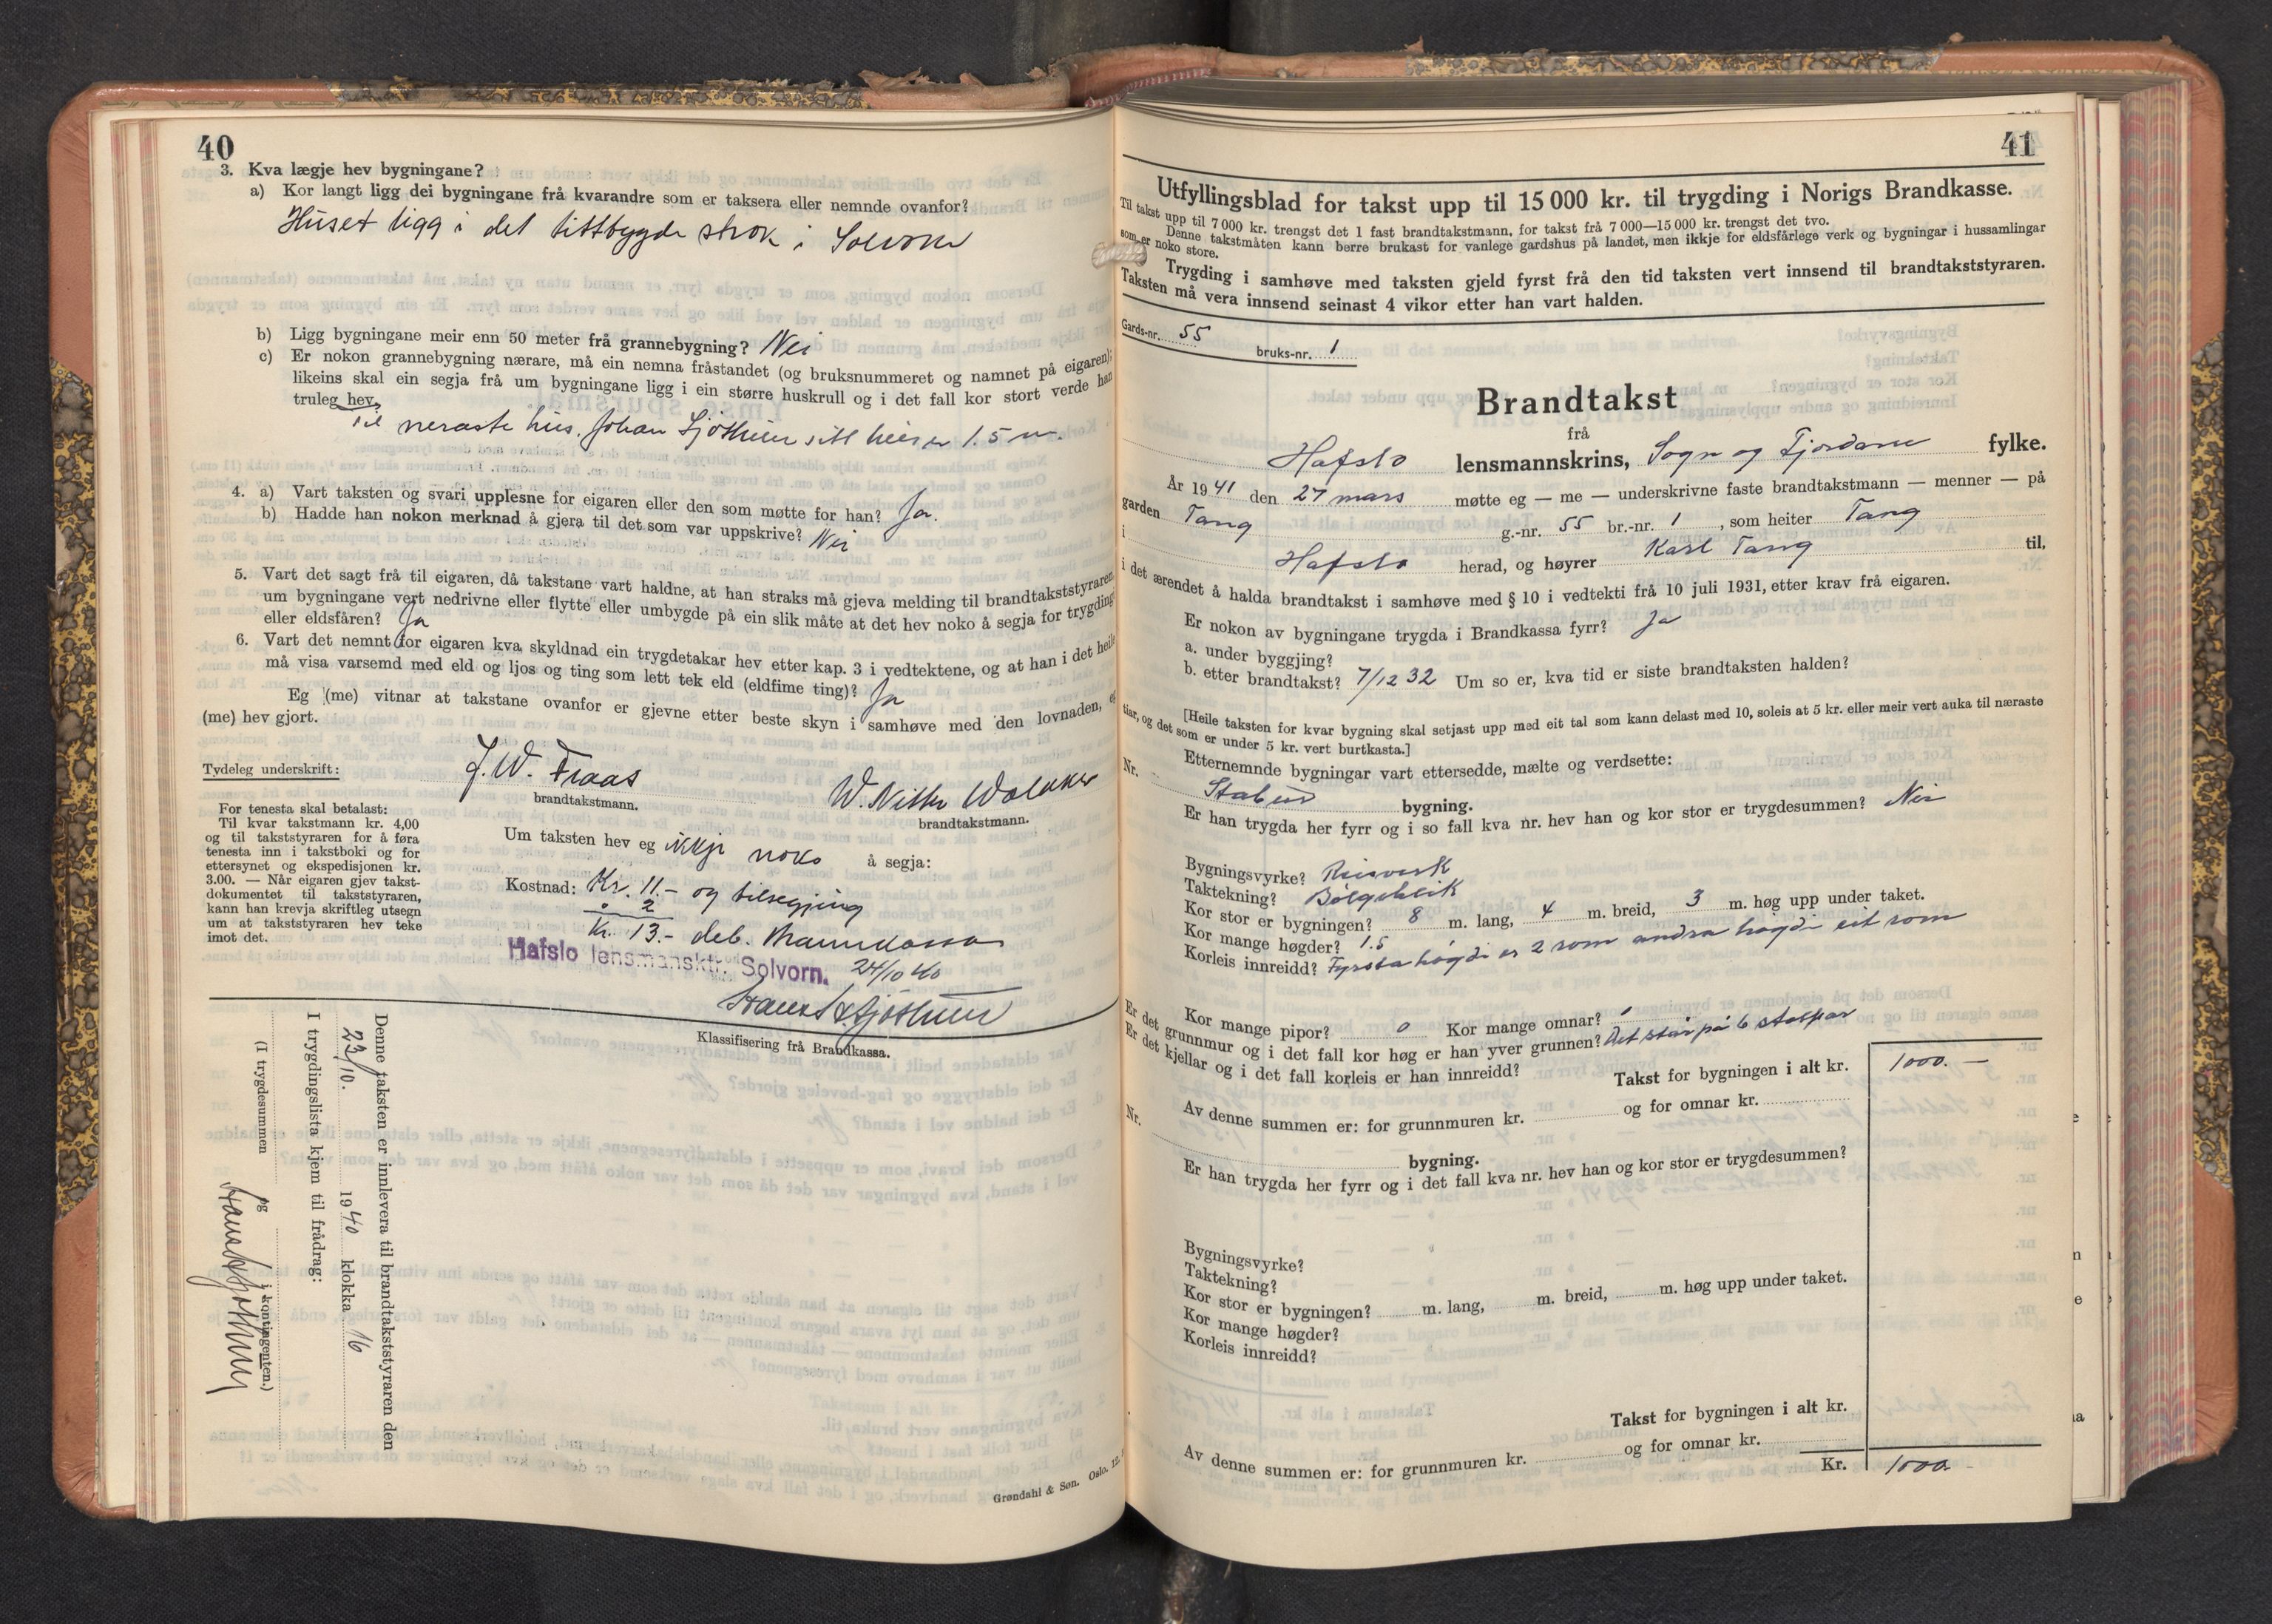 40
3. Kva lægje hev bygningane?
a) Kor langt ligg dei bygningane frå kvarandre som er taksera eller nemnde ovanfor?
Huset ligg i det tittbygde strok i Solvorn
b) Ligg bygningane meir enn 50 meter frå grannebygning? Nei
c) Er nokon grannebygning nærare, må ein nemna fråstandet (og bruksnummeret og namnet på eigaren);
likeins skal ein segja frå um bygningane ligg i ein større huskrull og i det fall kor stort verde han
truleg hev.
Til næraste hus, Johan Sjøtheim sitt hus er 1.5 m.
4. a) Vart taksten og svari upplesne for eigaren eller den som møtte for han? Ja.
b) Hadde han nokon merknad å gjera til det som var uppskrive? Nei
5. Vart det sagt frå til eigaren, då takstane vart haldne, at han straks må gjeva melding til brandtakststyraren
um bygningane vert nedrivne eller flytte eller umbygde på ein slik måte at det hev noko å segja for trygding
eller eldsfåren? Ja
6. Vart det nemnt for eigaren kva skyldnad ein trygdetakar hev etter kap. 3 i vedtektene, og at han i det heile
må visa varsemd med eld og ljos og ting som lett tek eld (eldfime ting)? Ja
Eg (me) vitnar at takstane ovanfor er gjevne etter beste skyn i samhøve med den lovnaden, eg
(me) hev gjort.
Tydeleg underskrift:
J. W. Fraas
brandtakstmann.
W. Nitter Walaker
brandtakstmann.
For tenesta skal betalast:
Til kvar takstmann kr. 4,00
og til takststyraren for å føra
tenesta inn i takstboki og for
ettersynet og ekspedisjonen kr.
3.00. — Når eigaren gjev takst-
dokumentet til takststyraren,
kann han krevja skriftleg utsegn
um at takststyraren hev teke
imot det.
Um taksten hev eg ikkje noko å segja:
Kostnad: Kr. 11.- og tilsegjing
" 2
Kr. 13.- deb. Brannkassa
Hafslo lensmansktr. Solvorn. 24/10 40
Hans L. Sjøtheim
Klassifisering frå Brandkassa.
Denne taksten er innlevera til brandtakststyraren den
23/10. 1940 klokka 16
I trygdingslista kjem til frådrag:
(I trygdesummen og i kontingenten.)
Hans L Sjøtheim
Grøndahl & Søn. Oslo. 12.
41
Utfyllingsblad for takst upp til 15 000 kr. til trygding i Norigs Brandkasse.
Til takst upp til 7 000 kr. trengst det 1 fast brandtakstmann, for takst frå 7 000—15 000 kr. trengst det tvo.
Denne takstmåten kann berre brukast for vanlege gardshus på landet, men ikkje for eldsfårlege verk og bygningar i hussamlingar
som er noko store.
Trygding i samhøve med taksten gjeld fyrst frå den tid taksten vert innsend til brandtakststyraren.
Taksten må vera innsend seinast 4 vikor etter han vart halden.
Gards-nr. 55 bruks-nr. 1
Brandtakst
frå
Hafslo lensmannskrins, Sogn og Fjordane fylke.
År 1941 den 27 mars møtte eg — me — underskrivne faste brandtakstmann — menner — på
garden Tang g.-nr. 55 br.-nr. 1, som heiter Tang
i Hafslo herad, og høyrer Karl Tang til,
i det ærendet å halda brandtakst i samhøve med § 10 i vedtekti frå 10 juli 1931, etter krav frå eigaren.
Er nokon av bygningane trygda i Brandkassa fyrr? Ja
a. under byggjing?
b. etter brandtakst? 7/12 32 Um so er, kva tid er siste brandtaksten halden?
[Heile taksten for kvar bygning skal setjast upp med eit tal som kann delast med 10, soleis at 5 kr. eller meir vert auka til næraste
tiar, og det som er under 5 kr. vert burtkasta.]
Etternemnde bygningar vart ettersedde, mælte og verdsette:
Nr. Stabur bygning.
Er han trygda her fyrr og i so fall kva nr. hev han og kor stor er trygdesummen? Nei
Bygningsvyrke? Reisverk
Taktekning? Bølgeblikk
Kor stor er bygningen? 8 m. lang, 4 m. breid, 3 m. høg upp under taket.
Kor mange høgder? 1.5
Korleis innreidd? Fyrsta høgdi er 2 rom andra høgdi eit rom
Kor mange pipor? 0 Kor mange omnar?
Er det grunnmur og i det fall kor høg er han yver grunnen? Det står på 6 stolpar
Er det kjellar og i det fall korleis er han innreidd?
Takst for bygningen i alt kr. 1000.—
Av denne summen er: for grunnmuren kr. og for omnar kr.
Nr. bygning.
Er han trygda her fyrr og i det fall kva nr. hev han og kor stor er trygdesummen?
Bygningsvyrke?
Taktekning?
Kor stor er bygningen? m. lang, m. breid, m. høg upp under taket.
Kor mange høgder?
Korleis innreidd?
Takst for bygningen i alt kr.
Av denne summen er: for grunnmuren kr. og for omnar kr.
Kr. 1000.-